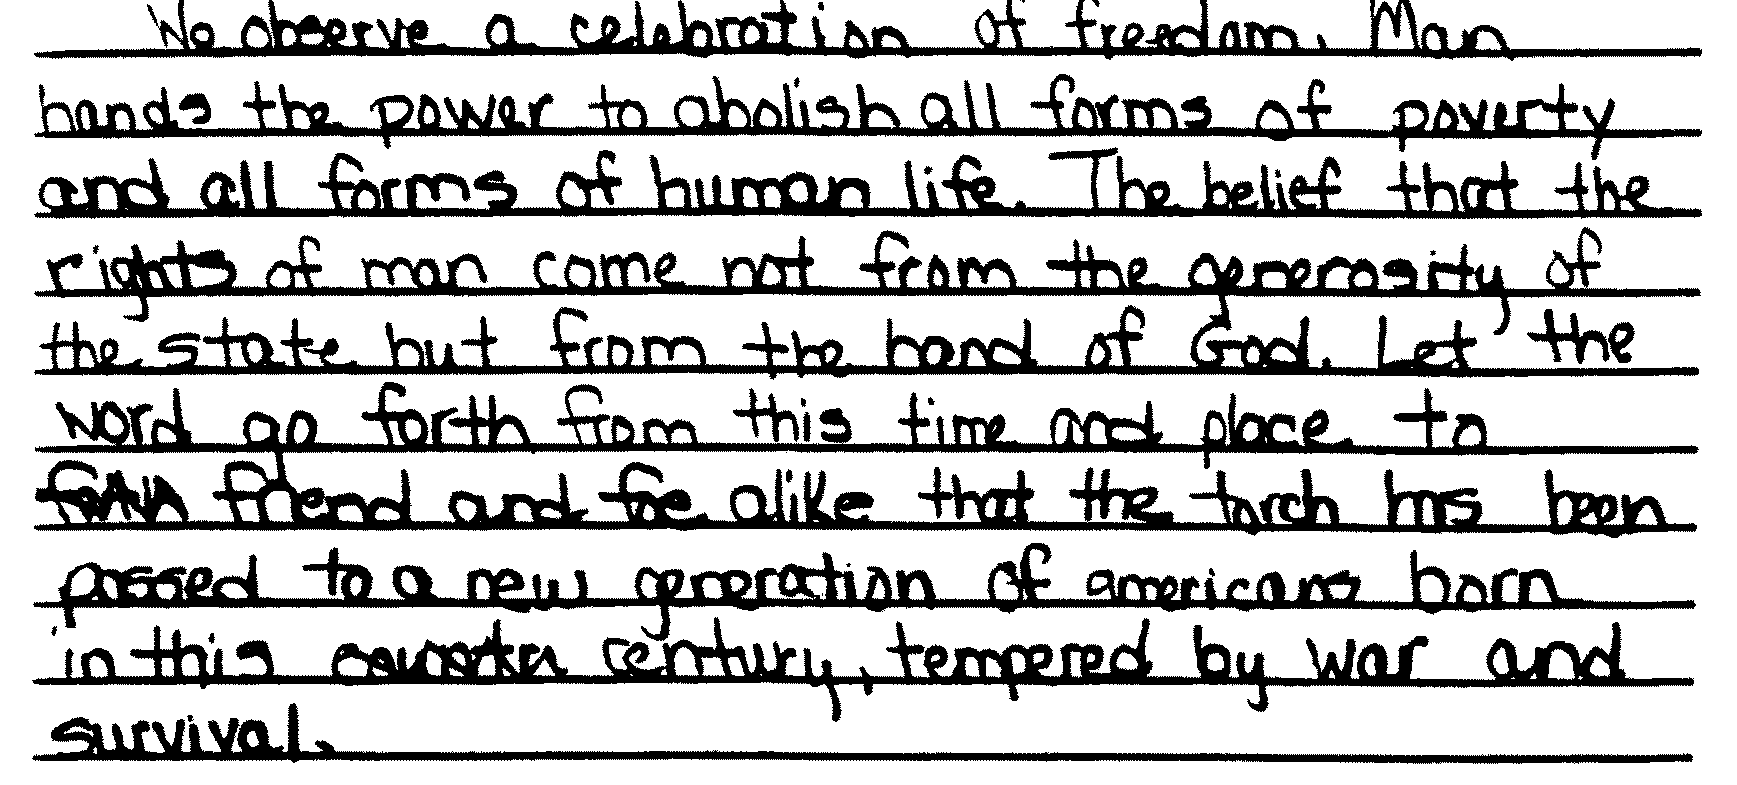 We observe a celebration of freedom. Man
hands the power to abolish all forms of poverty
and all forms of human life. The belief that the
rights of man come not from the generosity of
the state but from the hand of God. Let the
word go forth from this time and place to
friend and foe alike that the torch has been
passed to a new generation of americans born
in this century, tempered by war and
survival.